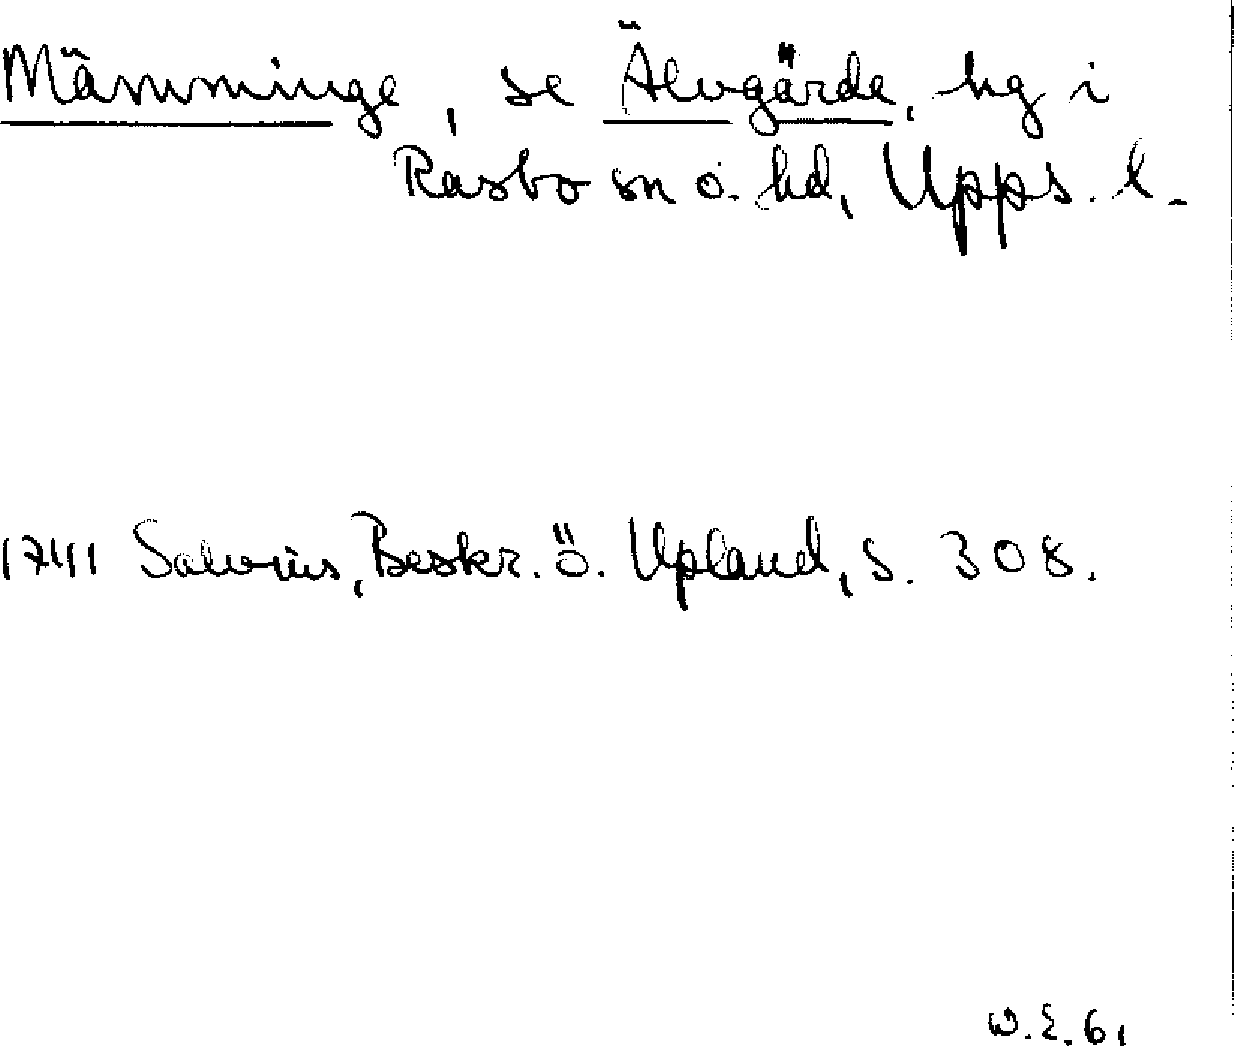 Mämminge, se Älvgärde, hg i
Rasbo sn o. hd, Upps. l.
1741 Salvius, Beskr. ö. Upland, s. 308.
W.E. 61